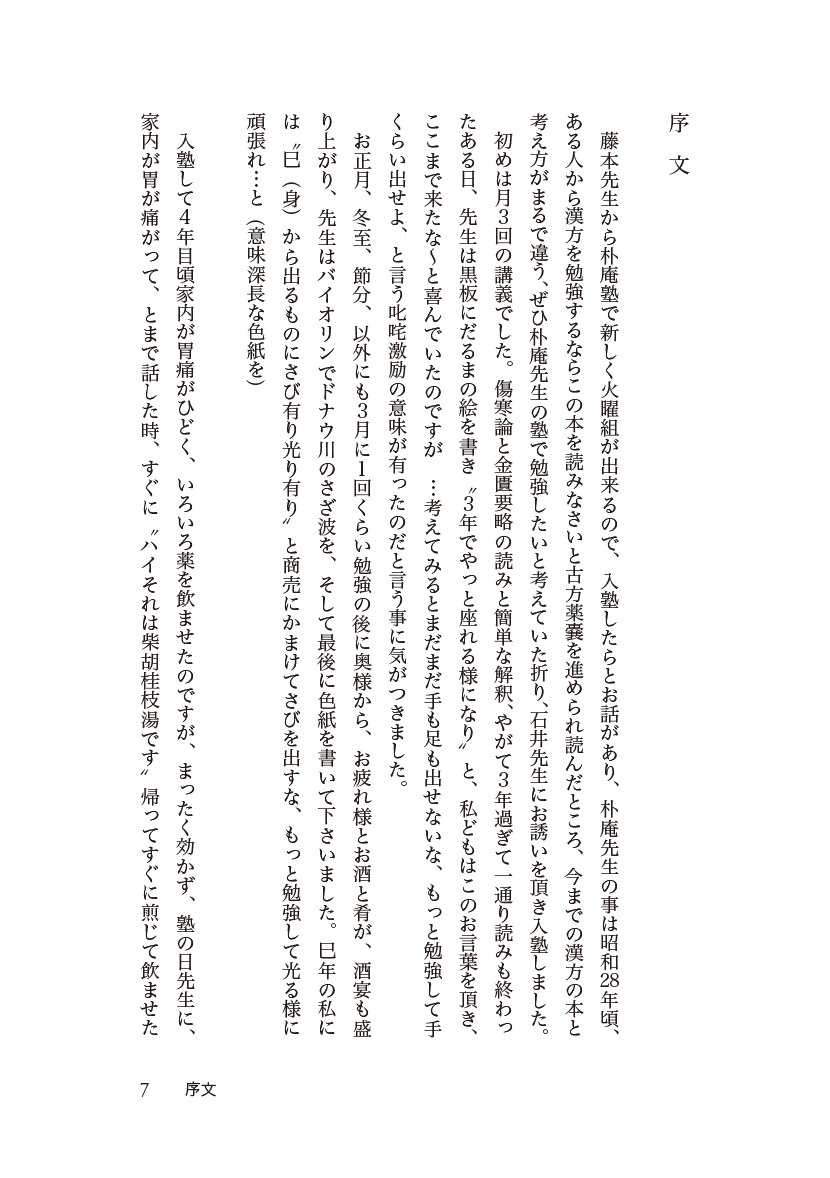 序　文
藤本先生から朴庵塾で新しく火曜組が出来るので、入塾したらとお話があり、朴庵先生の事は昭和28年頃、
ある人から漢方を勉強するならこの本を読みなさいと古方薬嚢を進められ読んだところ、今までの漢方の本と
考え方がまるで違う、ぜひ朴庵先生の塾で勉強したいと考えていた折り、石井先生にお誘いを頂き入塾しました。
初めは月３回の講義でした。傷寒論と金匱要略の読みと簡単な解釈、やがて３年過ぎて一通り読みも終わっ
たある日、先生は黒板にだるまの絵を書き〝３年でやっと座れる様になり〟と、私どもはこのお言葉を頂き、
ここまで来たな〜と喜んでいたのですが　…考えてみるとまだまだ手も足も出せないな、もっと勉強して手
くらい出せよ、と言う叱咤激励の意味が有ったのだと言う事に気がつきました。
お正月、冬至、節分、以外にも３月に１回くらい勉強の後に奥様から、お疲れ様とお酒と肴が、酒宴も盛
り上がり、先生はバイオリンでドナウ川のさざ波を、そして最後に色紙を書いて下さいました。巳年の私に
は〝巳（身）から出るものにさび有り光り有り〟と商売にかまけてさびを出すな、もっと勉強して光る様に
頑張れ…と（意味深長な色紙を）
入塾して４年目頃家内が胃痛がひどく、いろいろ薬を飲ませたのですが、まったく効かず、塾の日先生に、
家内が胃が痛がって、とまで話した時、すぐに〝ハイそれは柴胡桂枝湯です〟帰ってすぐに煎じて飲ませた
7　序文